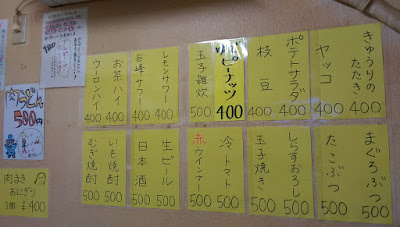 きゅうりの
たたき
400
ヤッコ
400
ポテトサラダ
400
枝豆
400
ピーナッツ
400
玉子雑炊
500
レモンサワー
400
巨峰サワー
400
お茶ハイ
400
ウーロンハイ
400
まぐろぶつ
500
たこぶつ
500
しらすおろし
500
玉子焼き
500
冷トマト
500
赤ウインナー
500
生ビール
500
日本酒
500
いも焼酎
500
むぎ焼酎
500
肉うどん
500円
肉まき
おにぎり
3個 ¥400